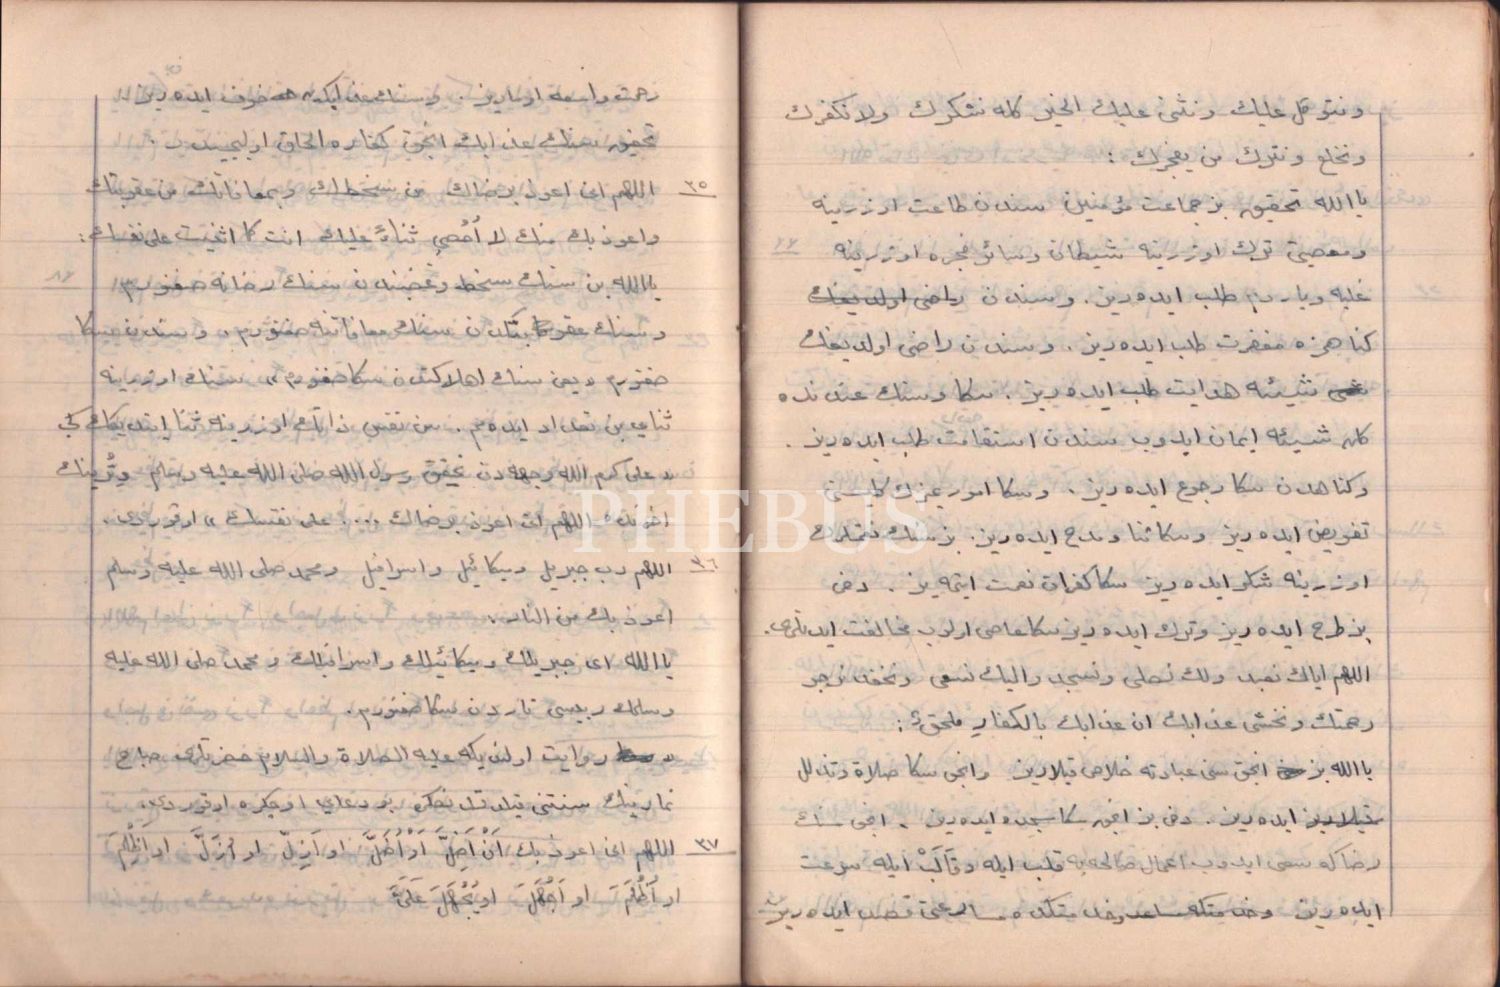 ونتوكل عليك ونثنى عليك الخير كله نشكرك ولا نكفرك
ونخلع ونترك من يفجرك :
يا الله تحقيق بز جماعت مؤمنين سندن طاعت اوزرينه
ومعصيتى ترك اوزرينه شيطان وسائر فجره اوزرينه
غلبه ويارديم طلب ايده ريز . وسندن راضى اولديغك
كناهمزه مغفرت طلب ايده ريز . وسندن راضى اولديغك
شيئه هدايت طلب ايده ريز . سكا وسنك عندنده
كلن شيئه ايمان ايدوب سندن استقامت طلب ايده ريز .
وكناهدن سكا رجوع ايده ريز . وسكا امورغيزك كليسنى
تفويض ايده ريز وسكا ثنا ومدح ايده ريز . بز سنك نعمتلرك
اوزرينه شكر ايده ريز سكا كفران نعمت ايتمه يز . دخى
بز طرح ايده ريز وترك ايده ريز سكا عاصى اولوب مخالفت ايدنلرى .
اللهم اياك نعبد ولك نصلى ونسجد واليك نسعى ونحفد نرجو
رحمتك ونخشى عذابك ان عذابك بالكفار ملحق :
يا الله بز انجق سنى عبادته خلاص قيلاريز وانجق سكا صلاة وتذلل
ايده ريز . دخى بز انجق سكا سجده ايده ريز . انجق سنك
رضاكه سعى ايدوب اعمال صالحه يه قلب ايله وقالب ايله سرعت
ايده ريز وخدمتكه مساعد وخدمتكده قصد ايده ريز
رحمت واسعه اومارىز . وسنك عذابكدن خوف ايده ريز
تحقيق سنك عذابك انجق كفاره الحاق اوليجيدر .
٣٥ اللهم انى اعوذ برضاك من سخطك وبمعافاتك من عقوبتك
واعوذ بك منك لا أُحصي ثناءً عليك انت كما اثنيت على نفسك :
يا الله بن سنك سخط وغضبندن سنك رضانه صغنورم
وسنك عقوبتكدن سنك معافاتنه صغنورم . وسندن سكا
صغنورم . يعنى سنك اهلاككدن سكا صغنورم . سنك اوزرينه
ثنايى بن تعداد ايده مم . سن نفس ذاتك اوزرينه ثنا ايتديكك كبى
على كرم الله وجهه دن تحقيق رسول الله صلى الله عليه وسلم وترينك
اخرنده اللهم انى اعوذ برضاك .... على نفسك » اوقوردى .
٣٦ اللهم رب جبريل وميكائيل واسرافيل ومحمد صلى الله عليه وسلم
اعوذ بك من النار .
يا الله اى جبريلك وميكائيلك واسرافيلك ومحمد صلى الله عليه
وسلمك ربيسى ناردن سكا صغنورم .
روايت اولنديكه عليه الصلاة والسلام حضرتلرى صباح
نمازينك سنتنى قيلدقدنصكره بو دعايى اوچكره اوقوردى .
٣٧ اللهم انى اعوذ بك أَنْ أَضِلَّ أَوْ أُضَلَّ او أَزِلَّ او أُزَلَّ او أَظْلِمَ
او أُظْلَمَ او أَجْهَلَ او يُجْهَلَ عَلَيَّ
PHEBUS